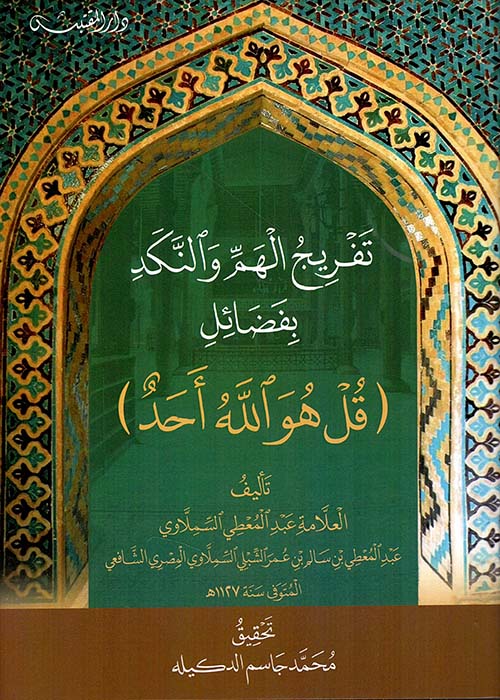 دار المقتبس
تَفْرِيجُ الْهَمِّ وَٱلنَّكَدِ
بِفَضَائِلِ
(قُلْ هُوَ ٱللَّهُ أَحَدٌ)
تَأْلِيفُ
العَلَّامَةِ عَبْدِ الْمُعْطِي السَّمِلَّاوِي
عَبْدِ الْمُعْطِي بْنِ سَالِمِ بْنِ عُمَرَ الشِّبْلِيِّ السَّمِلَّاوِيِّ الْمِصْرِيِّ الشَّافِعِي
الْمُتَوَفَّى سَنَةَ ١١٢٧هـ
تَحْقِيقُ
مُحَمَّد جَاسِم الدكيله